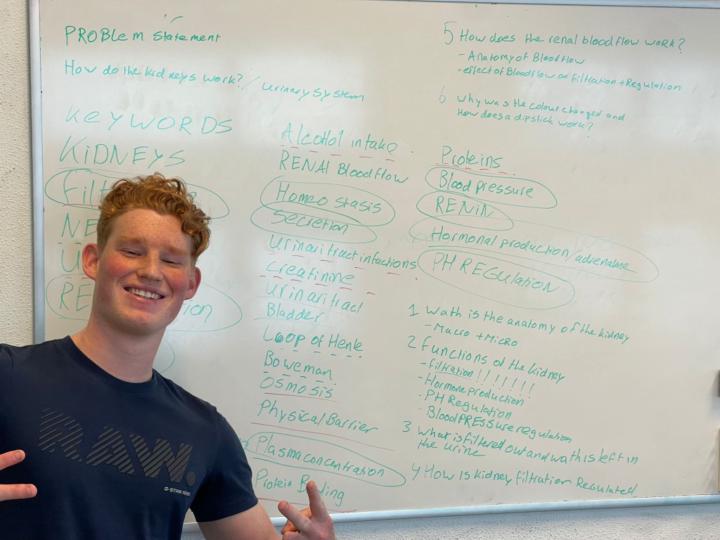 PROBlem statement
How do the kidneys work? / urinary system
KEYWORDS
KIDNEYS
Filt
NE
U
RE
tion
Alcohol intake
RENAl Blood flow
Homeostasis
Secretion
Urinari tract infactions
Creatinine
Urinari tract
Bladder
Loop of Henle
Boweman
Osmosis
Physical Barrier
Plasma concentration
Protein Binding
5 How does the renal blood flow work?
- Anatomy of Bloodflow
- effect of Bloodflow on filtration + Regulation
6 Why was the colour changed and
How does a dipstick work?
Proteins
Blood pressure
RENiN
Hormonal production/adrenaline
PH REGulation
1 Wath is the anatomy of the kidney
- Macro + Micro
2 Functions of the kidney
- filtration !!!!!!!
- Hormone production
- PH Regulation
- Blood PRESSure regulation
3 What is filtered out and wath is left in
the urine
4 How is kidney filtration Regulated
RAW.
G-STAR RAW